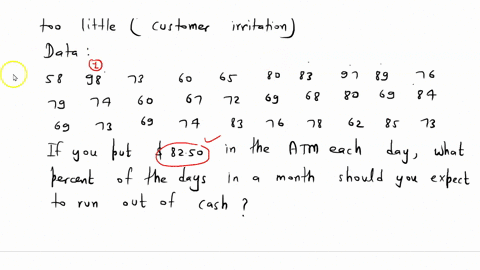 too little ( customer irritation)
Data :
1
58 98 73 60 65 80 83 97 89 76
79 74 60 67 72 69 68 80 69 84
69 73 69 74 83 76 78 62 85 73
If you put $ 82.50 in the ATM each day, what
percent of the days in a month should you expect
to run out of cash ?